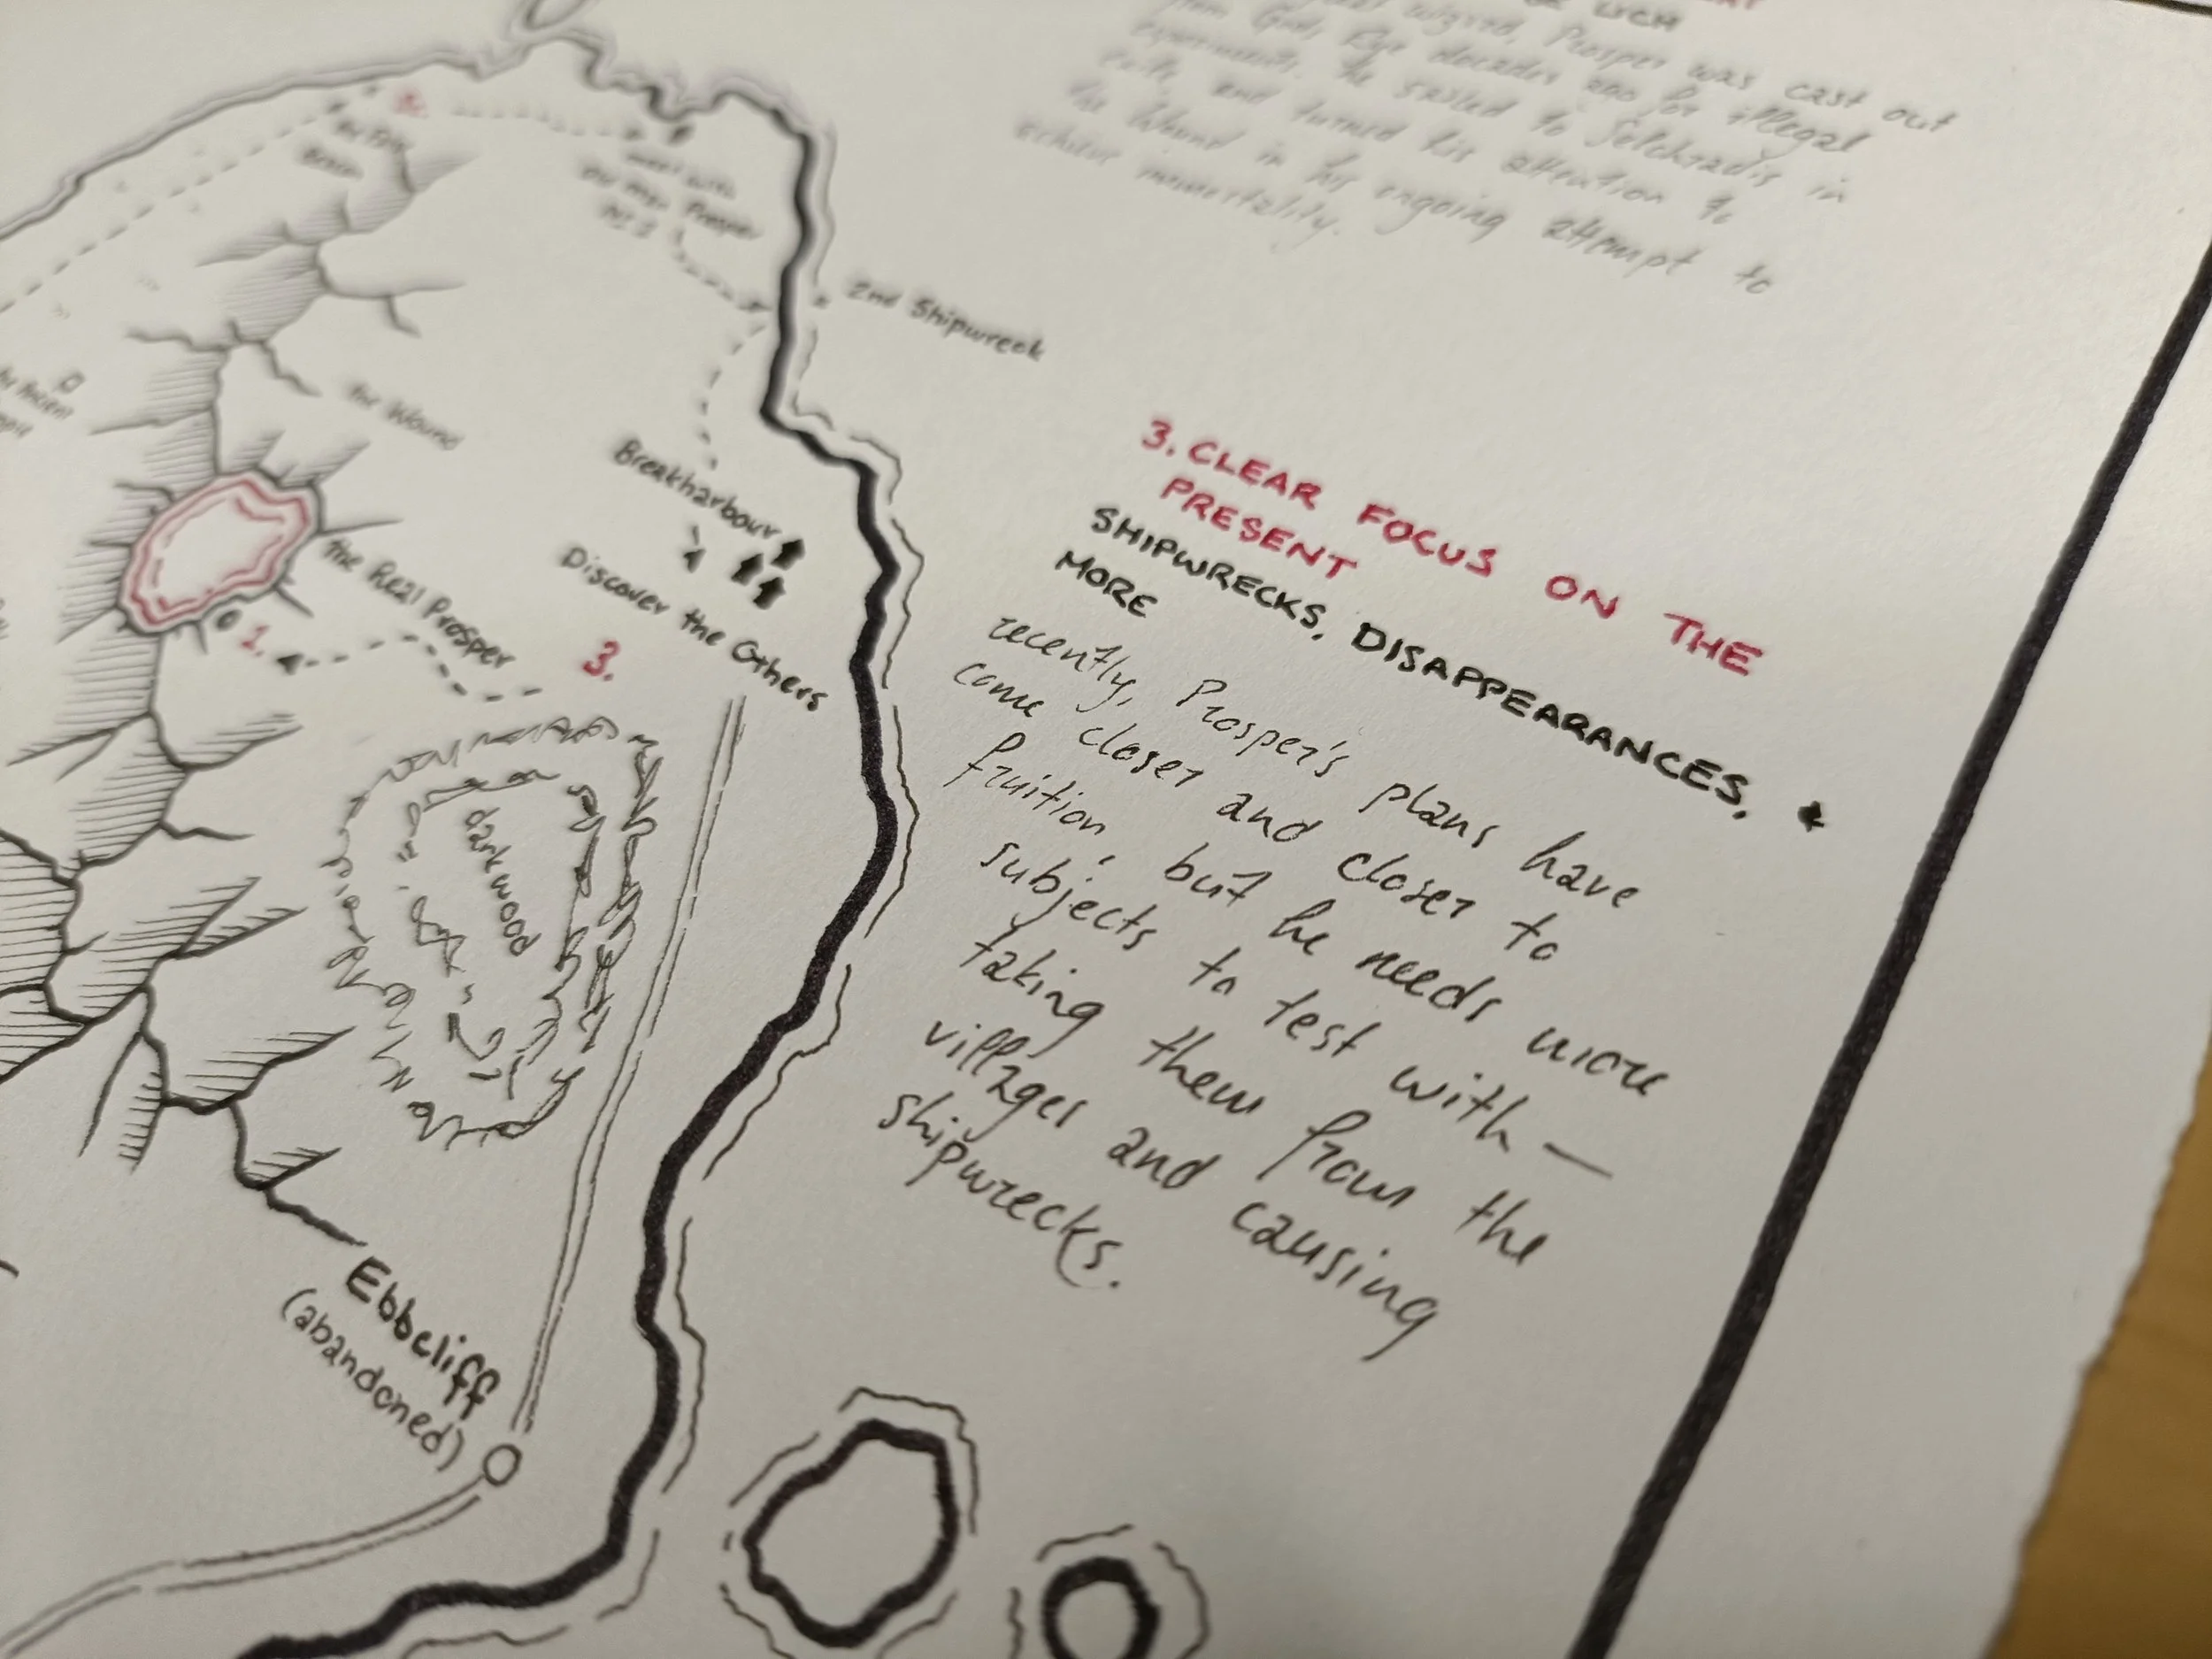 LICH
Prosper was cast out
decades ago for illegal
experiments. He sailed to Selchradis in
exile and turned his attention to
the Wound in his ongoing attempt to
achieve immortality.
2.
Prosper
2nd Shipwreck
the Wound
Breakharbour
Discover the Others
the Real Prosper
1.
3.
darkwood
Ebbcliff
(abandoned)
3. CLEAR FOCUS ON THE
PRESENT
SHIPWRECKS, DISAPPEARANCES, &
MORE
recently, Prosper's plans have
come closer and closer to
fruition, but he needs more
subjects to test with —
taking them from the
villages and causing
shipwrecks.